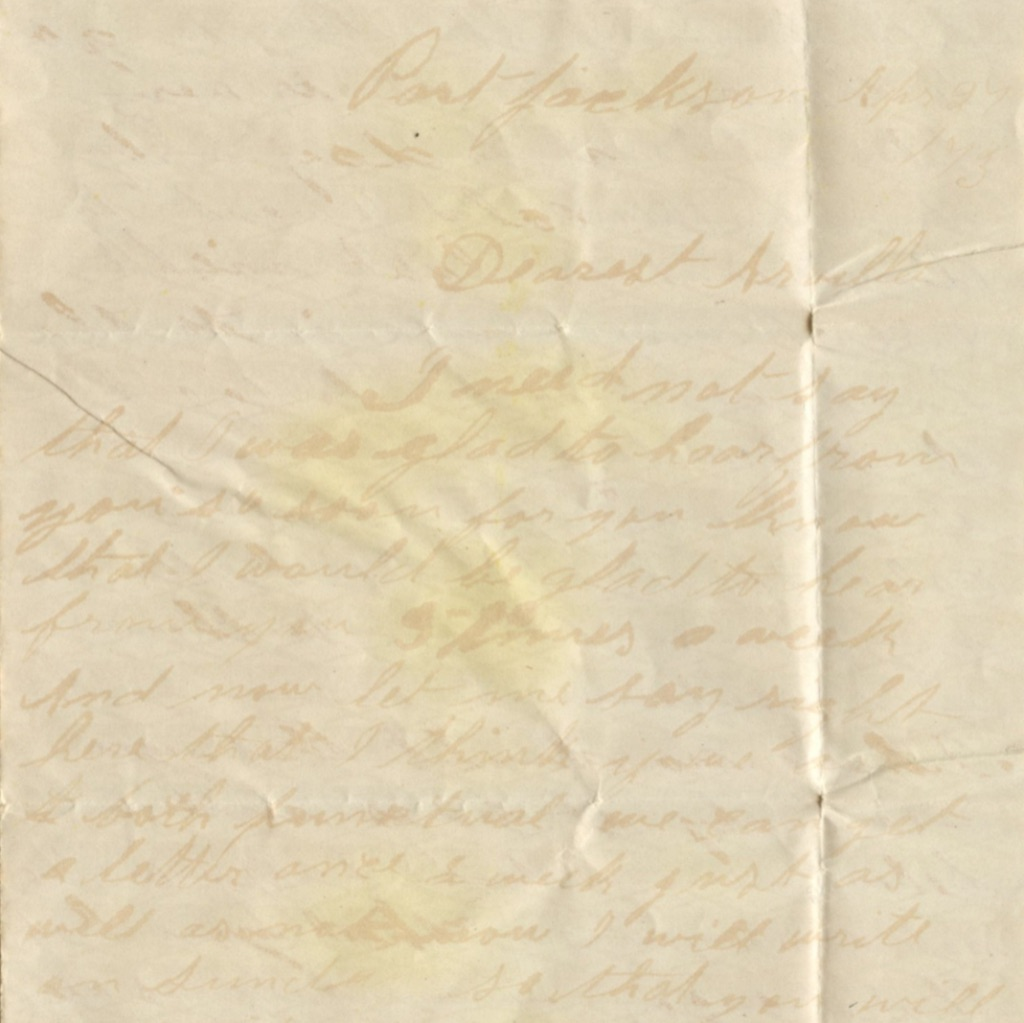 Port Jackson Apr 2
Dearest
I need not say
that I was glad to hear from
you so soon for you know
that I would be glad to hear
from you 3 times a week
And now let me say right
here that I think
both punctual we can get
a letter once a week just as
well as not now I will write
on so that you will